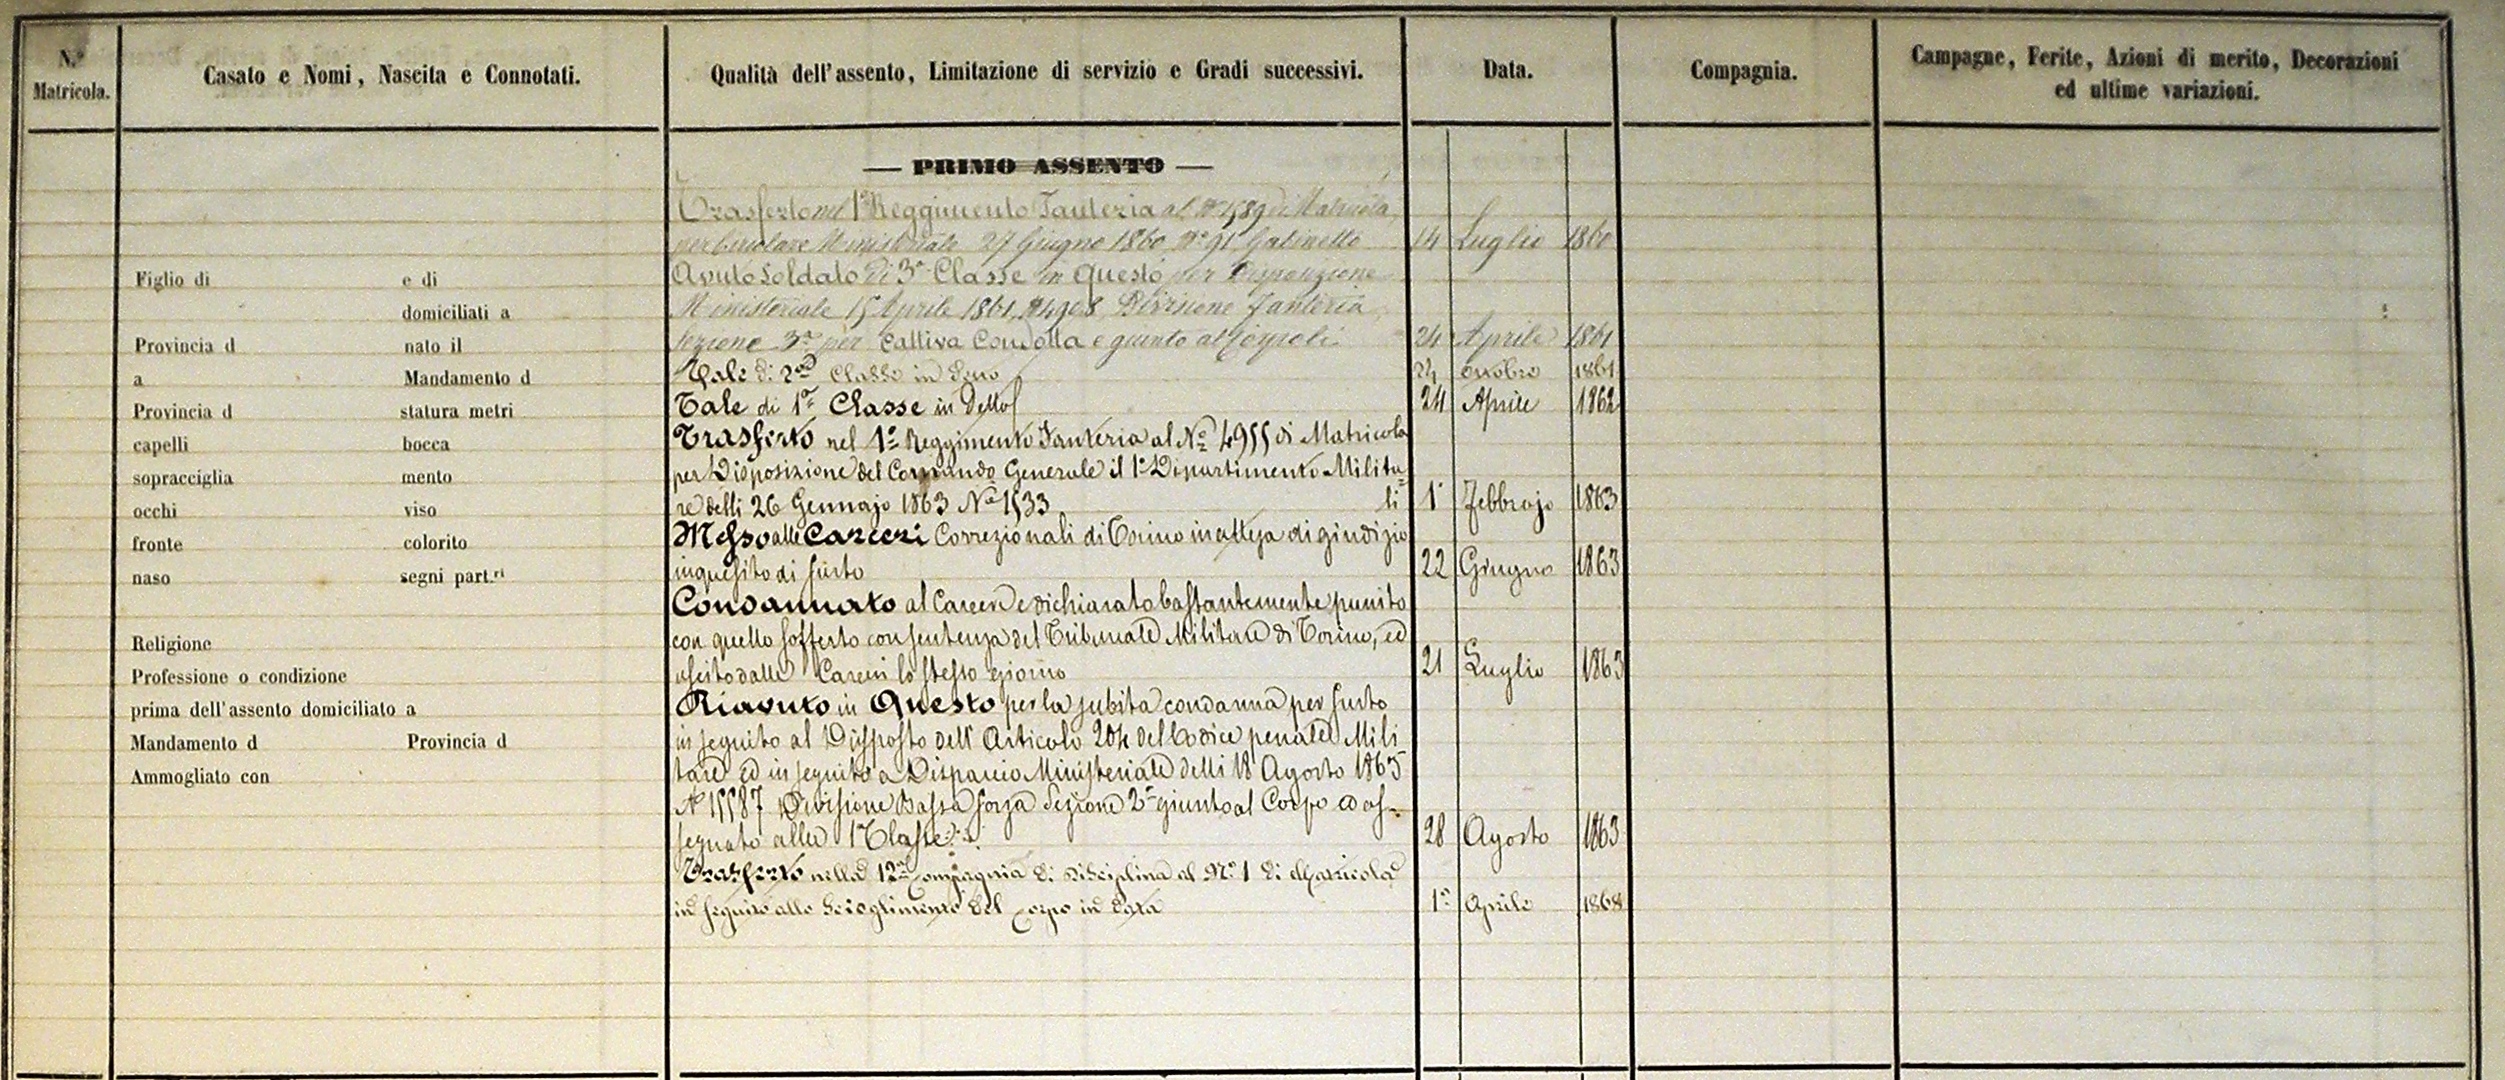 N.º Matricola.
Casato e Nomi, Nascita e Connotati.
Qualità dell'assento, Limitazione di servizio e Gradi successivi.
Data.
Compagnia.
Campagne, Ferite, Azioni di merito, Decorazioni
ed ultime variazioni.
— PRIMO ASSENTO —
Trasferto nel 1º Reggimento Fanteria al Nº 1589 di Matricola,
per Circolare Ministeriale 27 Giugno 1860 Nº 91 Gabinetto 14 Luglio 1860
Avuto Soldato di 3ª Classe in Questo per Disposizione
Ministeriale 15 Aprile 1861, Nº 4908 Divisione Fanteria
Sezione 3ª per Cattiva Condotta e giunto al Corpo li 24 Aprile 1861
Tale di 2ª Classe in Deno 24 Ottobre 1861
Tale di 1ª Classe in Detto 24 Aprile 1862
Trasferto nel 1º Reggimento Fanteria al Nº 4955 di Matricola
per Disposizione del Comando Generale il 1º Dipartimento Milita=
re delli 26 Gennajo 1863 Nº 1533 li 1º Febbrajo 1863
Messo alle Carceri Correzionali di Torino in attesa di giudizio
inquisito di furto 22 Giugno 1863
Condannato al Carcere e dichiarato bastantemente punito
con quello sofferto con sentenza del Tribunale Militare di Torino, ed
uscito dalle Carceri lo stesso giorno 21 Luglio 1863
Riavuto in Questo per la subita condanna per furto
in seguito al Disposto dell' Articolo 204 del Codice penale Mili
tare ed in seguito a Dispaccio Ministeriale delli 18 Agosto 1863
Nº 15587 Divisione Bassa forza Sezione 2ª giunto al Corpo ed as=
segnato alla 1ª Classe 28 Agosto 1863
Trasferto nella 12ª Compagnia di Disciplina al Nº 1 di Matricola
in seguito allo Scioglimento del Corpo in data 1º Aprile 1868
Figlio di e di
domiciliati a
Provincia d nato il
a Mandamento d
Provincia d statura metri
capelli bocca
sopracciglia mento
occhi viso
fronte colorito
naso segni part.ri
Religione
Professione o condizione
prima dell'assento domiciliato a
Mandamento d Provincia d
Ammogliato con